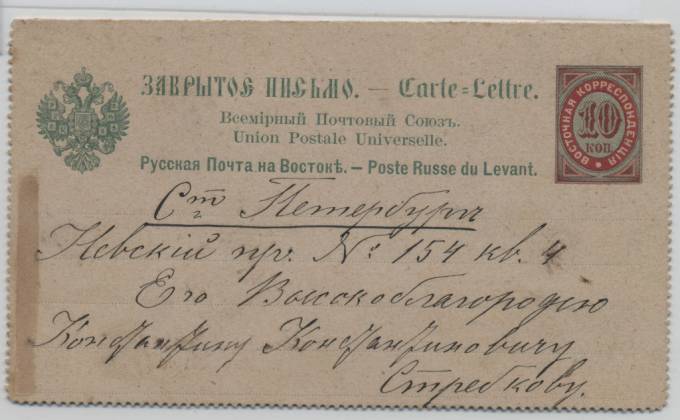 ЗАКРЫТОЕ ПИСЬМО. — Carte-Lettre.
Всемірный Почтовый Союзъ.
Union Postale Universelle.
Русская Почта на Востокѣ. — Poste Russe du Levant.
ВОСТОЧНАЯ КОРРЕСПОНДЕНЦІЯ
10
КОП.
Ст Петербургъ
Невскій пр. № 154 кв. 4
Его Высокоблагородію
Константину Константиновичу
Стребкову.